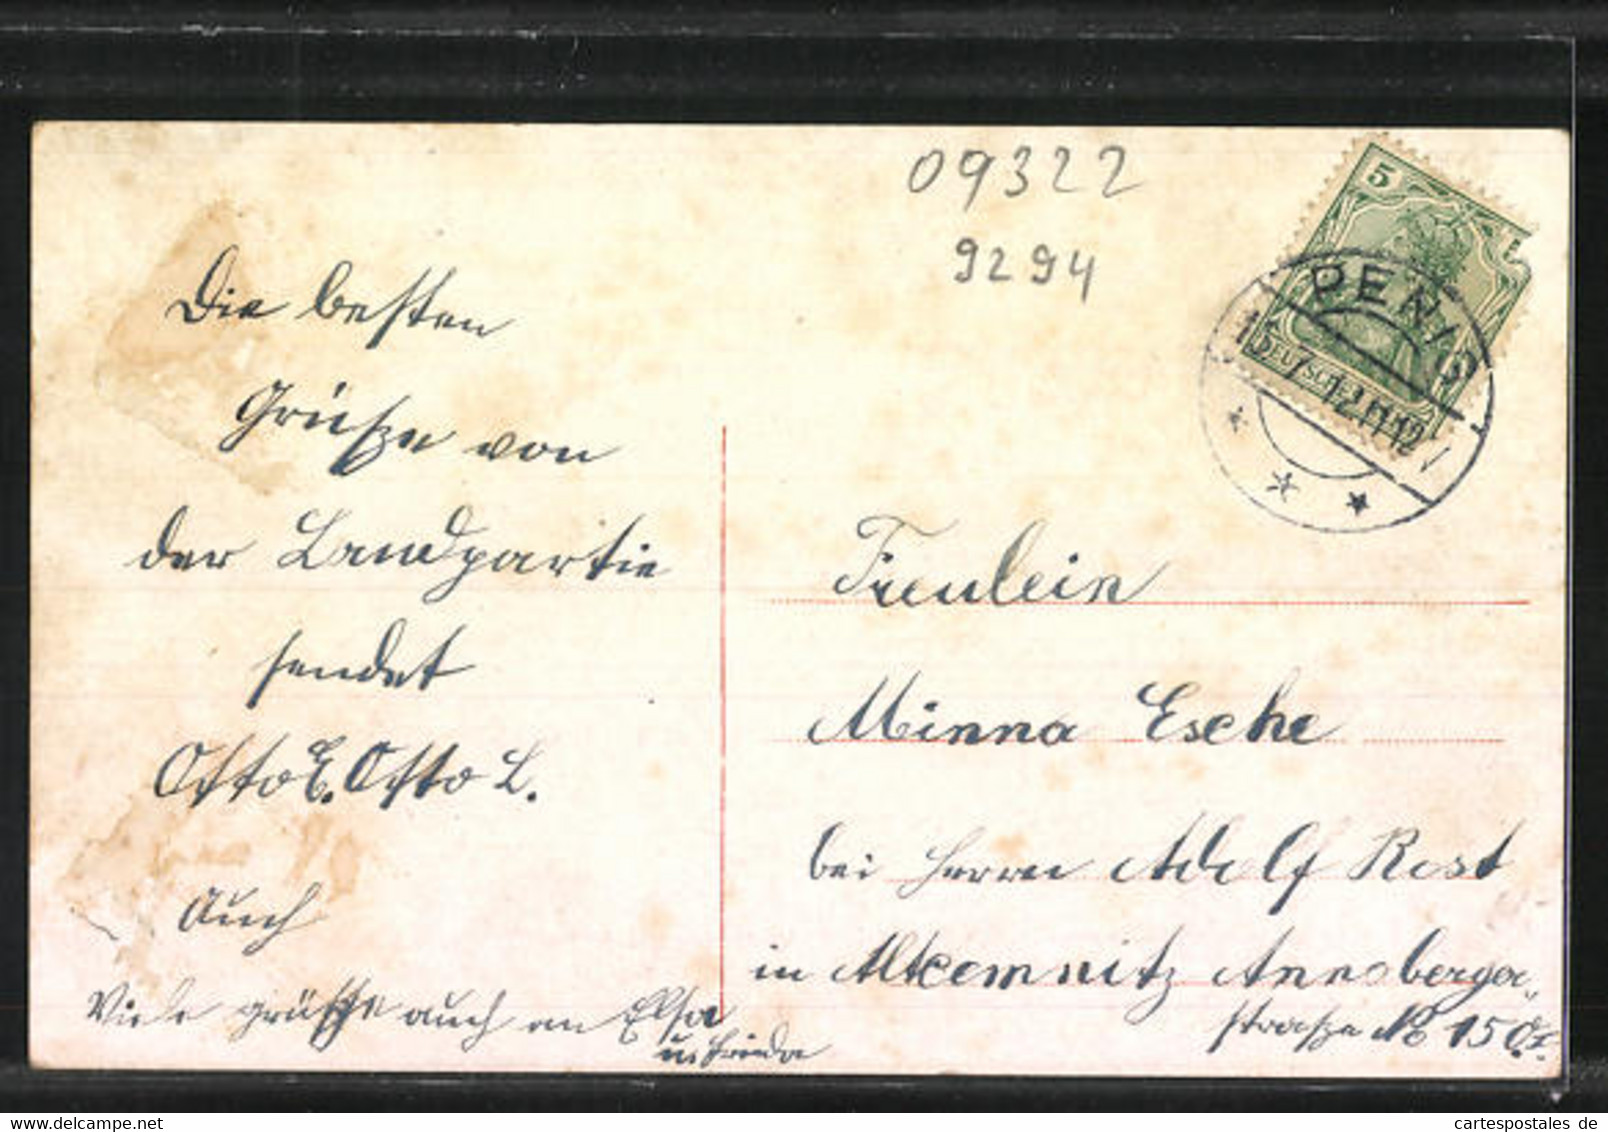 09322
9294
5
PENIG
15 7 12 11-12 V
DEUTSCHES
Die besten
Grüße von
der Landpartie
sendet
Otto E. Otto L.
Auch
Viele grüße auch an Elsa
u. Frieda
Freulein
Minna Esche
bei Herrn Adolf Rost
in Altcemnitz Annaberger-
straße No 150
cartespostales de
www.delcampe.net